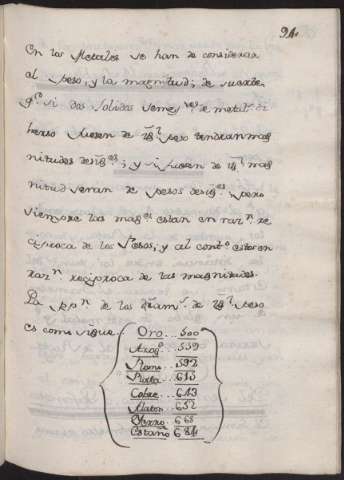 94.
En los Metales se han de considerar
al peso, y la magnitud; de suerte
q.e si dos solidos semej.es de metal di
berso fuesen de yg.l peso tendran mag
nitudes desig.es; y si fuesen de yg.l mag
nitud seran de pesos desig.es pero
siempre las mag.es estan en raz.n re
ciproca de los Pesos, y al cont.o estos en
raz.n reciproca de las magnitudes.
La pp.n de los diam.s de yg.l peso
es como sigue.
Oro... 500
Azog.o .. 559
Plomo... 592
Plata.. 615
Cobre... 643
Laton... 652
Yerro.. 668
Estaño 684